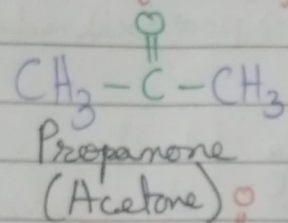 O
||
CH₃ – C – CH₃
Propanone
(Acetone)
O